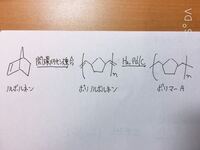 開環メタセシス重合 H₂, Pd/C
n n
ノルボルネン ポリノルボルネン ポリマーA